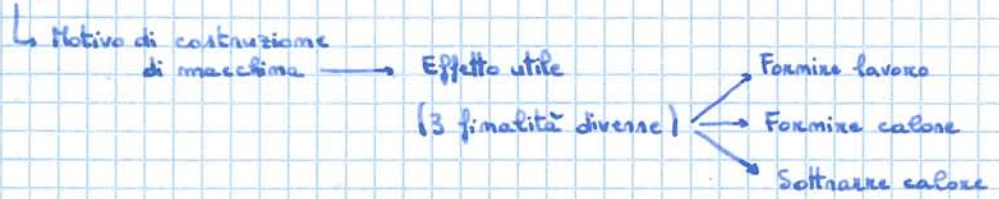 ↳ Motivo di costruzione
di macchina → Effetto utile
(3 finalità diverse)
→ Fornire lavoro
→ Fornire calore
→ Sottrarre calore